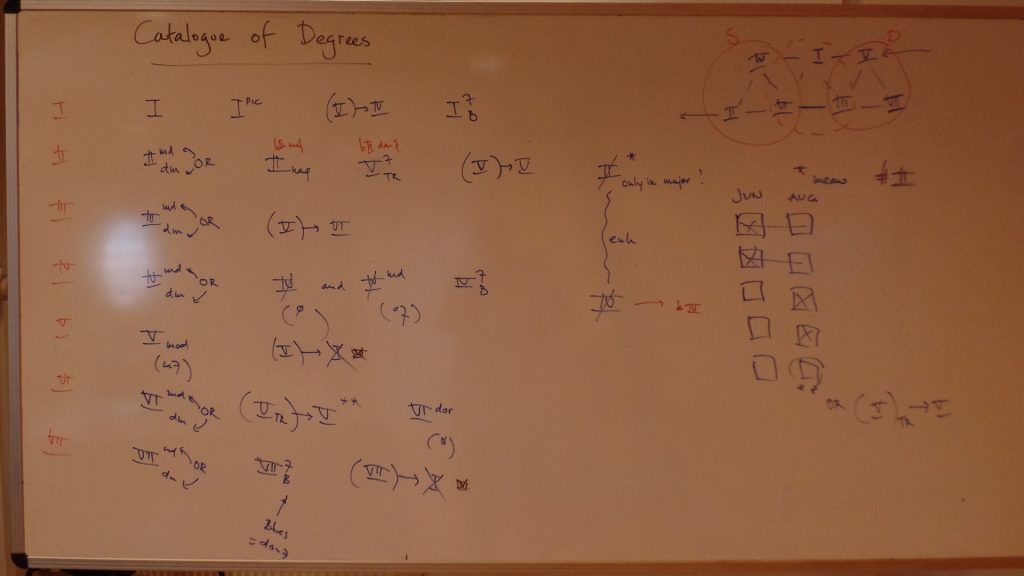 Catalogue of Degrees
I I I PIC (V)→IV I 7 B
II II md dm OR II nap V 7 TR (V)→V
III III md dm OR (V)→VI
IV IV md dm OR IV and IV md IV 7 B
(ø (o7)
V V mod (V)→
(m7)
VI VI md dm OR (V TR)→V ** VI dor
(ø)
VII VII md dm OR VII 7 B (VII)→
S D
IV I V
II VI III VII
II *
only in major!
enh
IV → bIV
* means #II
JUN AUG
**
OR (V) TR → V